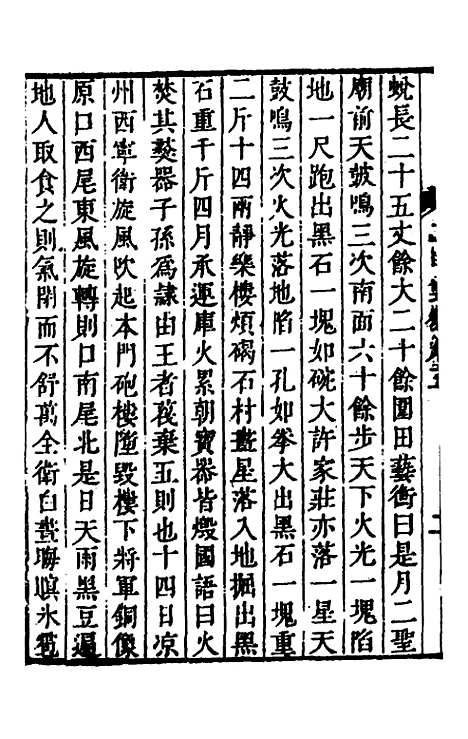 蛻長二十五丈餘大二十餘圍田藝衡曰是月二聖
廟前天鼓鳴三次南面六十餘步天下火光一塊陷
地一尺跑出黑石一塊如碗大許家莊亦落一星天
鼓鳴三次火光落地陷一孔如拳大出黑石一塊重
二斤十四兩靜樂樓煩碢石村晝星落入地掘出黑
石重千斤四月承運庫火累朝寶器皆燬國語曰火
焚其彝器子孫爲隷由王者葠棄五則也十四日凉
州西寧衛旋風吹起本門砲樓墮毀樓下將軍銅像
原口西尾東風旋轉則口南尾北是日天雨黑豆遍
地人取食之則氣閉而不舒萬全衛白晝晦瞑氷雹
二